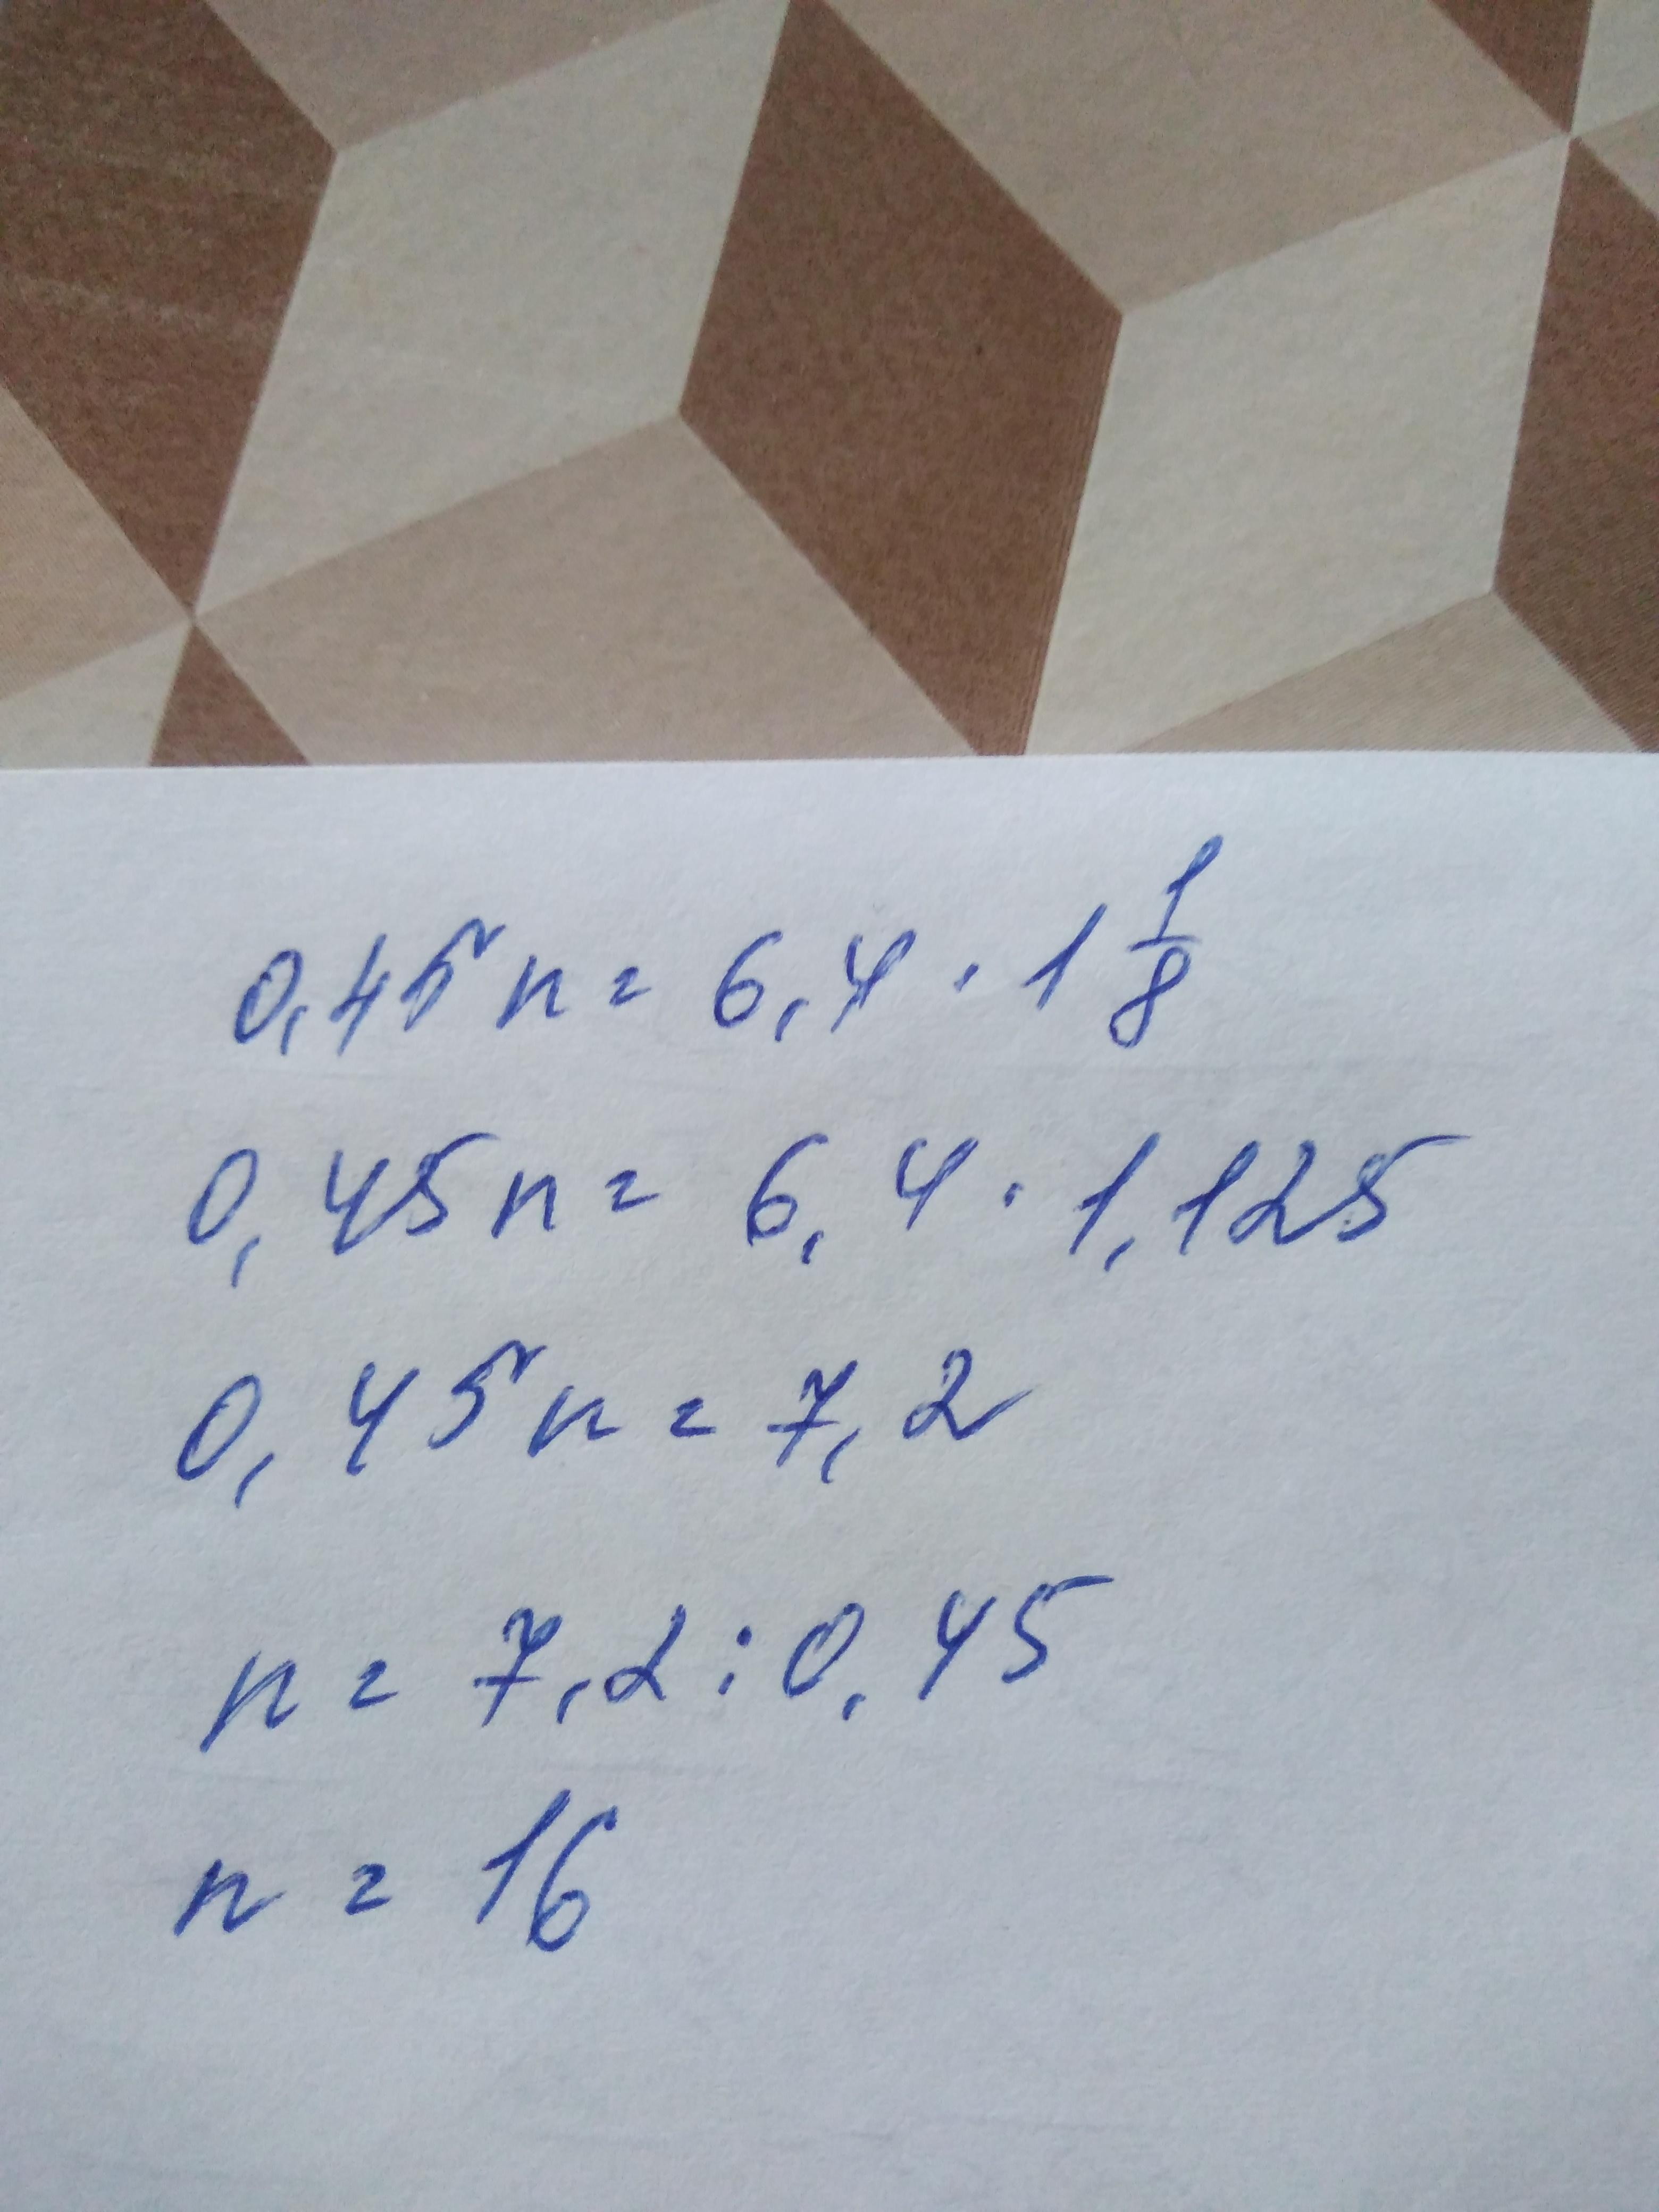 0,45n = 6,4 · 1 1/8
0,45n = 6,4 · 1,125
0,45n = 7,2
n = 7,2 : 0,45
n = 16